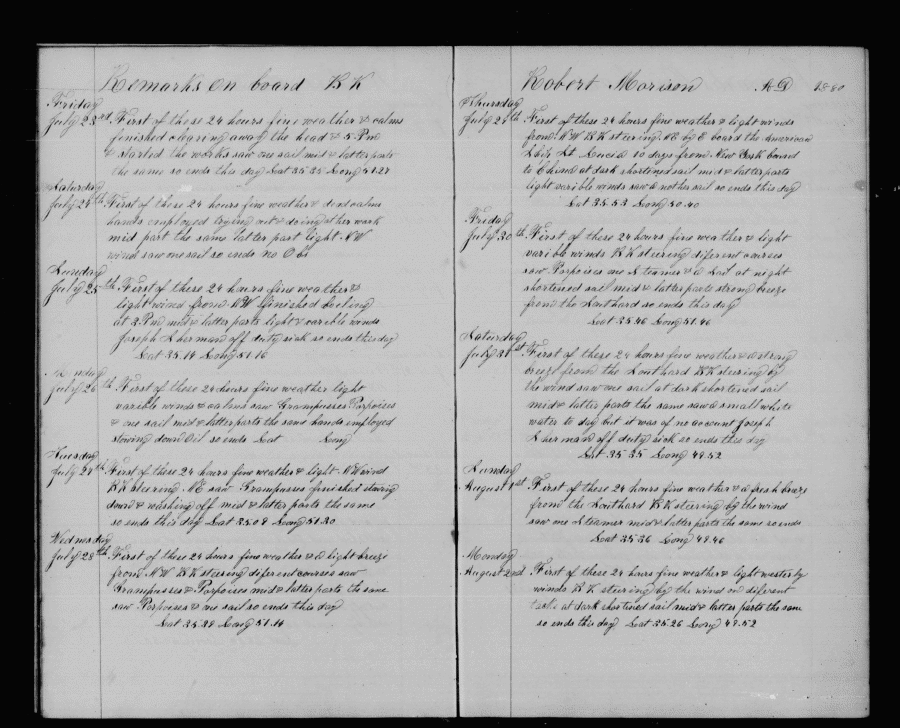 Remarks on board BK
Friday
July 23rd First of these 24 hours fine weather & calms
finished clearing away the head & 5 Pm
& started the works saw one sail mid & latter parts
the same so ends this day Lat 35.35 Long 51.27
Saturday
July 24th First of these 24 hours fine weather & dead calms
hands employed trying out & doing other work
mid part the same latter part light NW
wind saw one sail so ends no Obs
Sunday
July 25th First of these 24 hours fine weather &
light wind from NW finished boeling
at 3 Pm mid & latter parts light & varible winds
Joseph Sherman off duty sick so ends this day
Lat 35.14 Long 51.16
July 26th First of these 24 hours fine weather light
varible winds & calms saw Grampusses Porpoises
& one sail mid & latter parts the same hands employed
stowing down Oil so ends Lat Long
Tuesday
July 27th First of these 24 hours fine weather & light wind
BK steering NE saw Grampusses finished stowing
down & washing off mid & latter parts the same
so ends this day Lat 35.09 Long 51.30
Widnsday
July 28th First of these 24 hours fine weather & a light breze
from NW BK steering diferent courses saw
Grampusses & Porpoises mid & latter parts the same
saw Porpoises & one sail so ends this day
Lat 35.29 Long 51.14
Robert Morison AD 1880
Thursday
July 29th First of these 24 hours fine weather & light winds
from NW BK steering NE by E board the American
Ship St Lucia 10 days from New York bound
to China at dark shortened sail mid & latter parts
light varible winds saw another sail so ends this day
Lat 35.53 Long 50.40
Friday
July 30th First of these 24 hours fine weather & light
varible winds BK steering diferent courses
saw Porpoises one Steamer & a Sail at night
shortened sail mid & latter parts strong breze
from the Southard so ends this day
Lat 35.46 Long 51.46
Saturday
July 31st First of these 24 hours fine weather & a strong
breze from the Southard BK steering by
the wind saw one sail at dark shortened sail
mid & latter parts the same saw a small white
water to day but it was of no account Joseph
Sherman off duty sick so ends this day
Lat 35.35 Long 49.52
Sunday
August 1st First of these 24 hours fine weather & a fresh breze
from the Southard BK steering by the wind
saw one Steamer mid & latter parts the same so ends
Lat 35.36 Long 49.46
Monday
August 2nd First of these 24 hours fine weather & light westerly
winds BK steering by the wind on diferent
tacks at dark shortened sail mid & latter parts the same
so ends this day Lat 35.26 Long 49.52